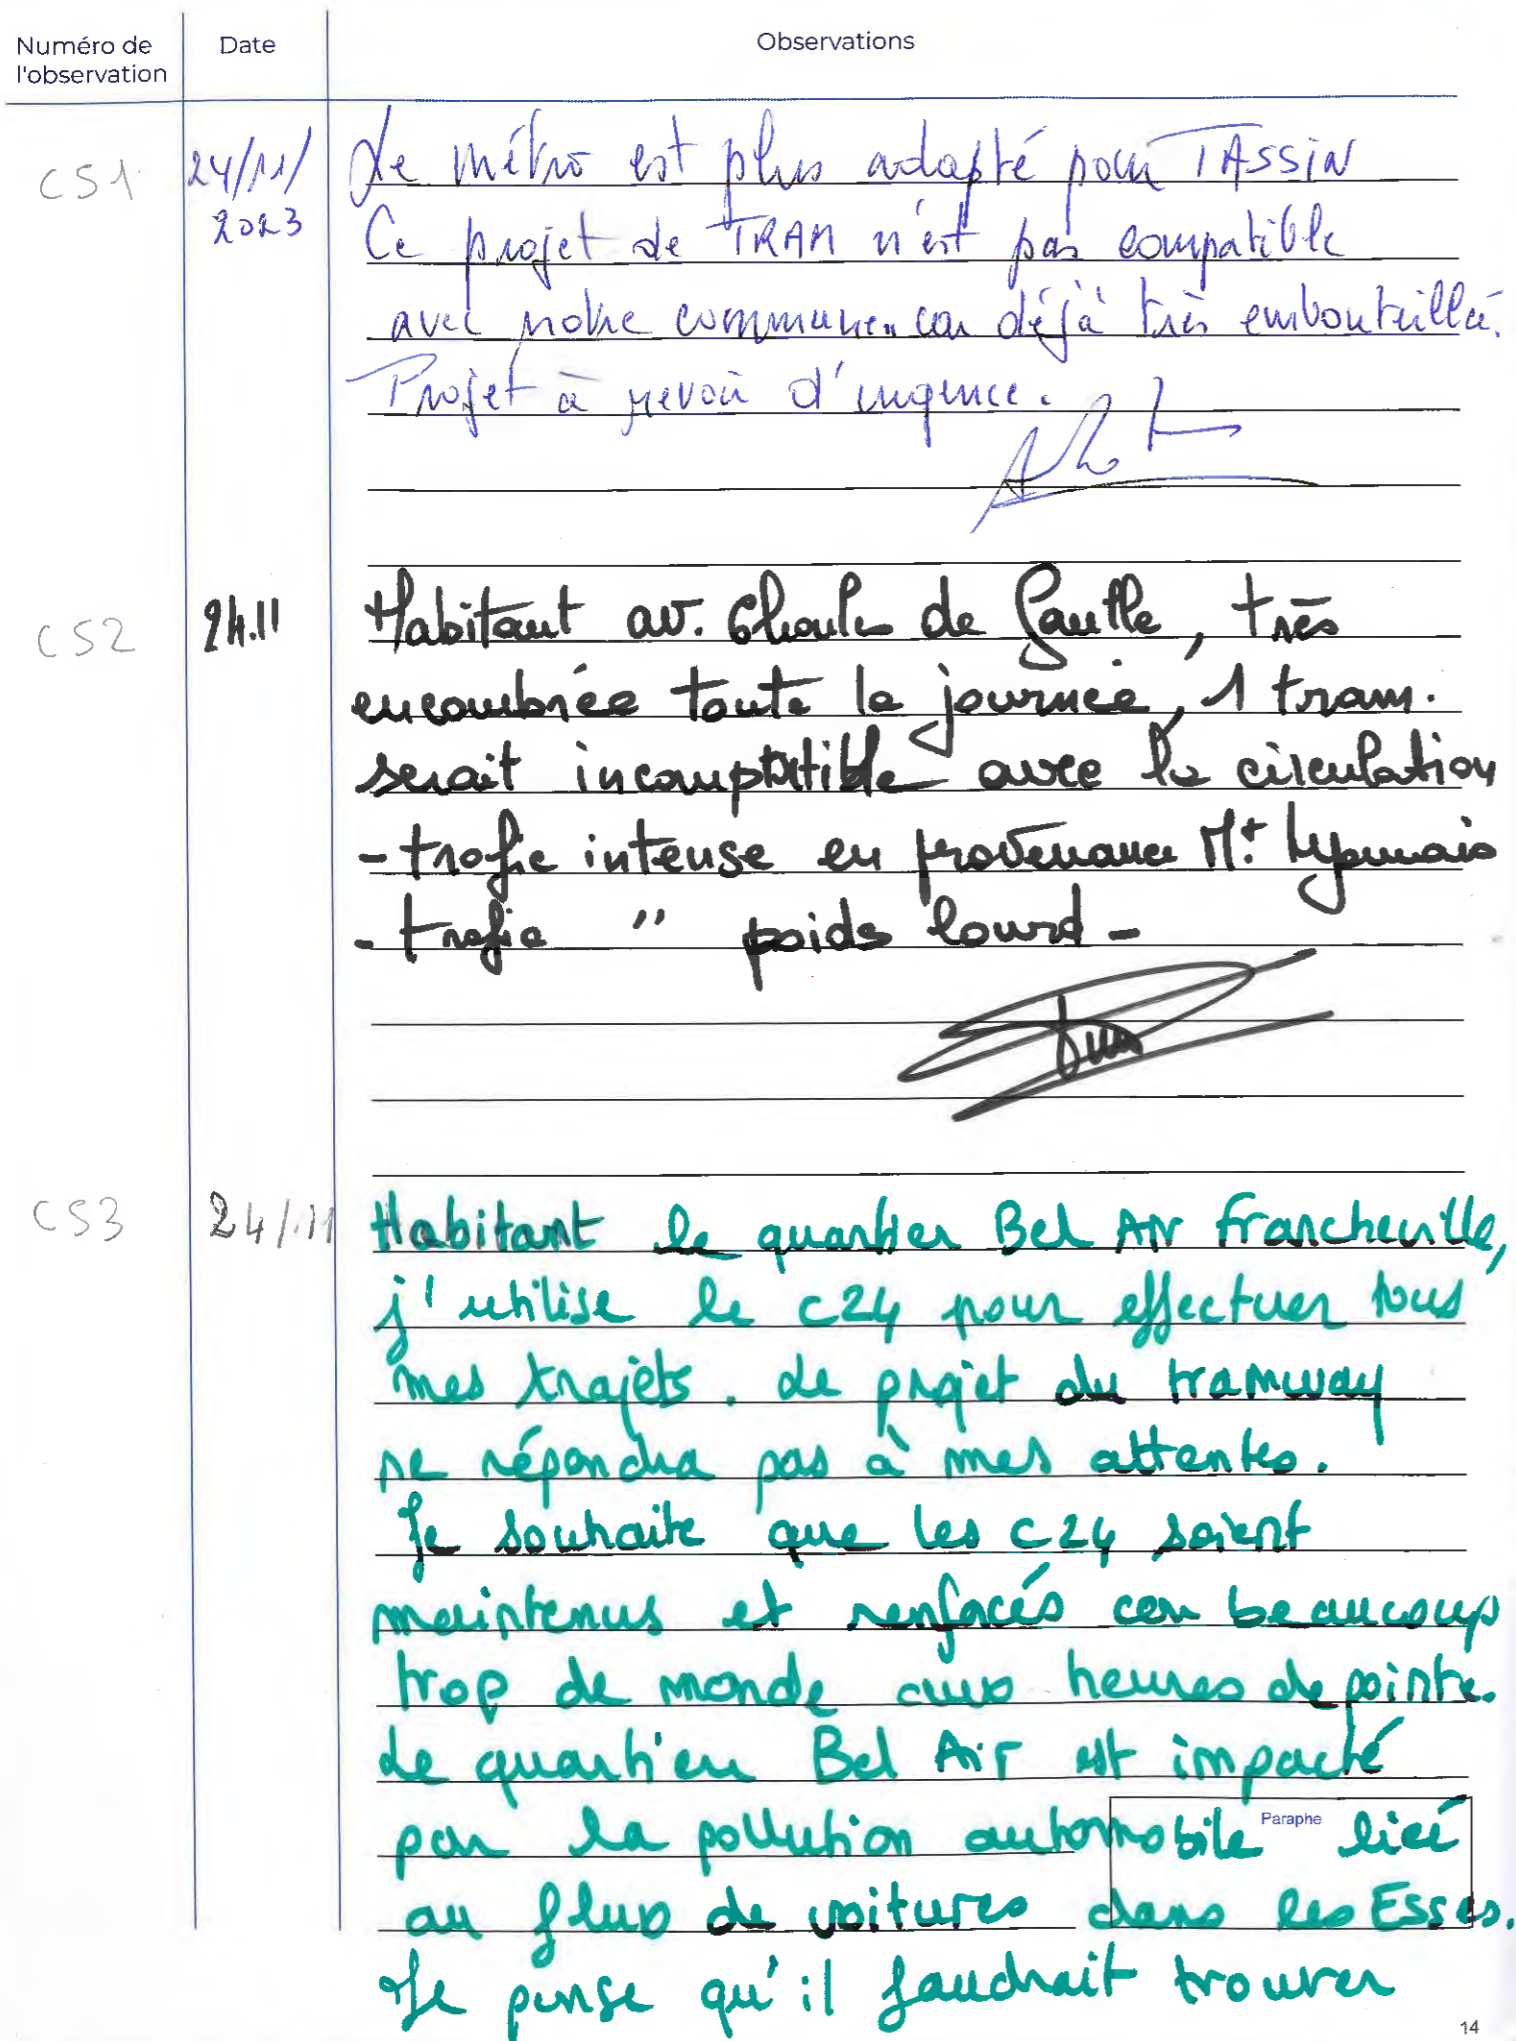 Numéro de l'observation Date Observations
CS1 24/11/2023 Le métro est plus adapté pour TASSIN
Ce projet de TRAM n'est pas compatible
avec notre commune car déjà très embouteillée.
Projet à revoir d'urgence.
CS2 24.11 Habitant av. Charles de Gaulle, très
encombrée toute la journée, 1 tram.
serait incompatible avec la circulation
- trafic intense en provenance Mt Lyonnais
- trafic " poids lourd -
CS3 24/11 Habitant le quartier Bel Air Francheville,
j'utilise le C24 pour effectuer tous
mes trajets. Le projet du tramway
ne répondra pas à mes attentes.
Je souhaite que les C24 soient
maintenus et renforcés car beaucoup
trop de monde aux heures de pointe.
Le quartier Bel Air est impacté
par la pollution automobile liée
Paraphe
au flux de voitures dans les Esses.
Je pense qu'il faudrait trouver
14